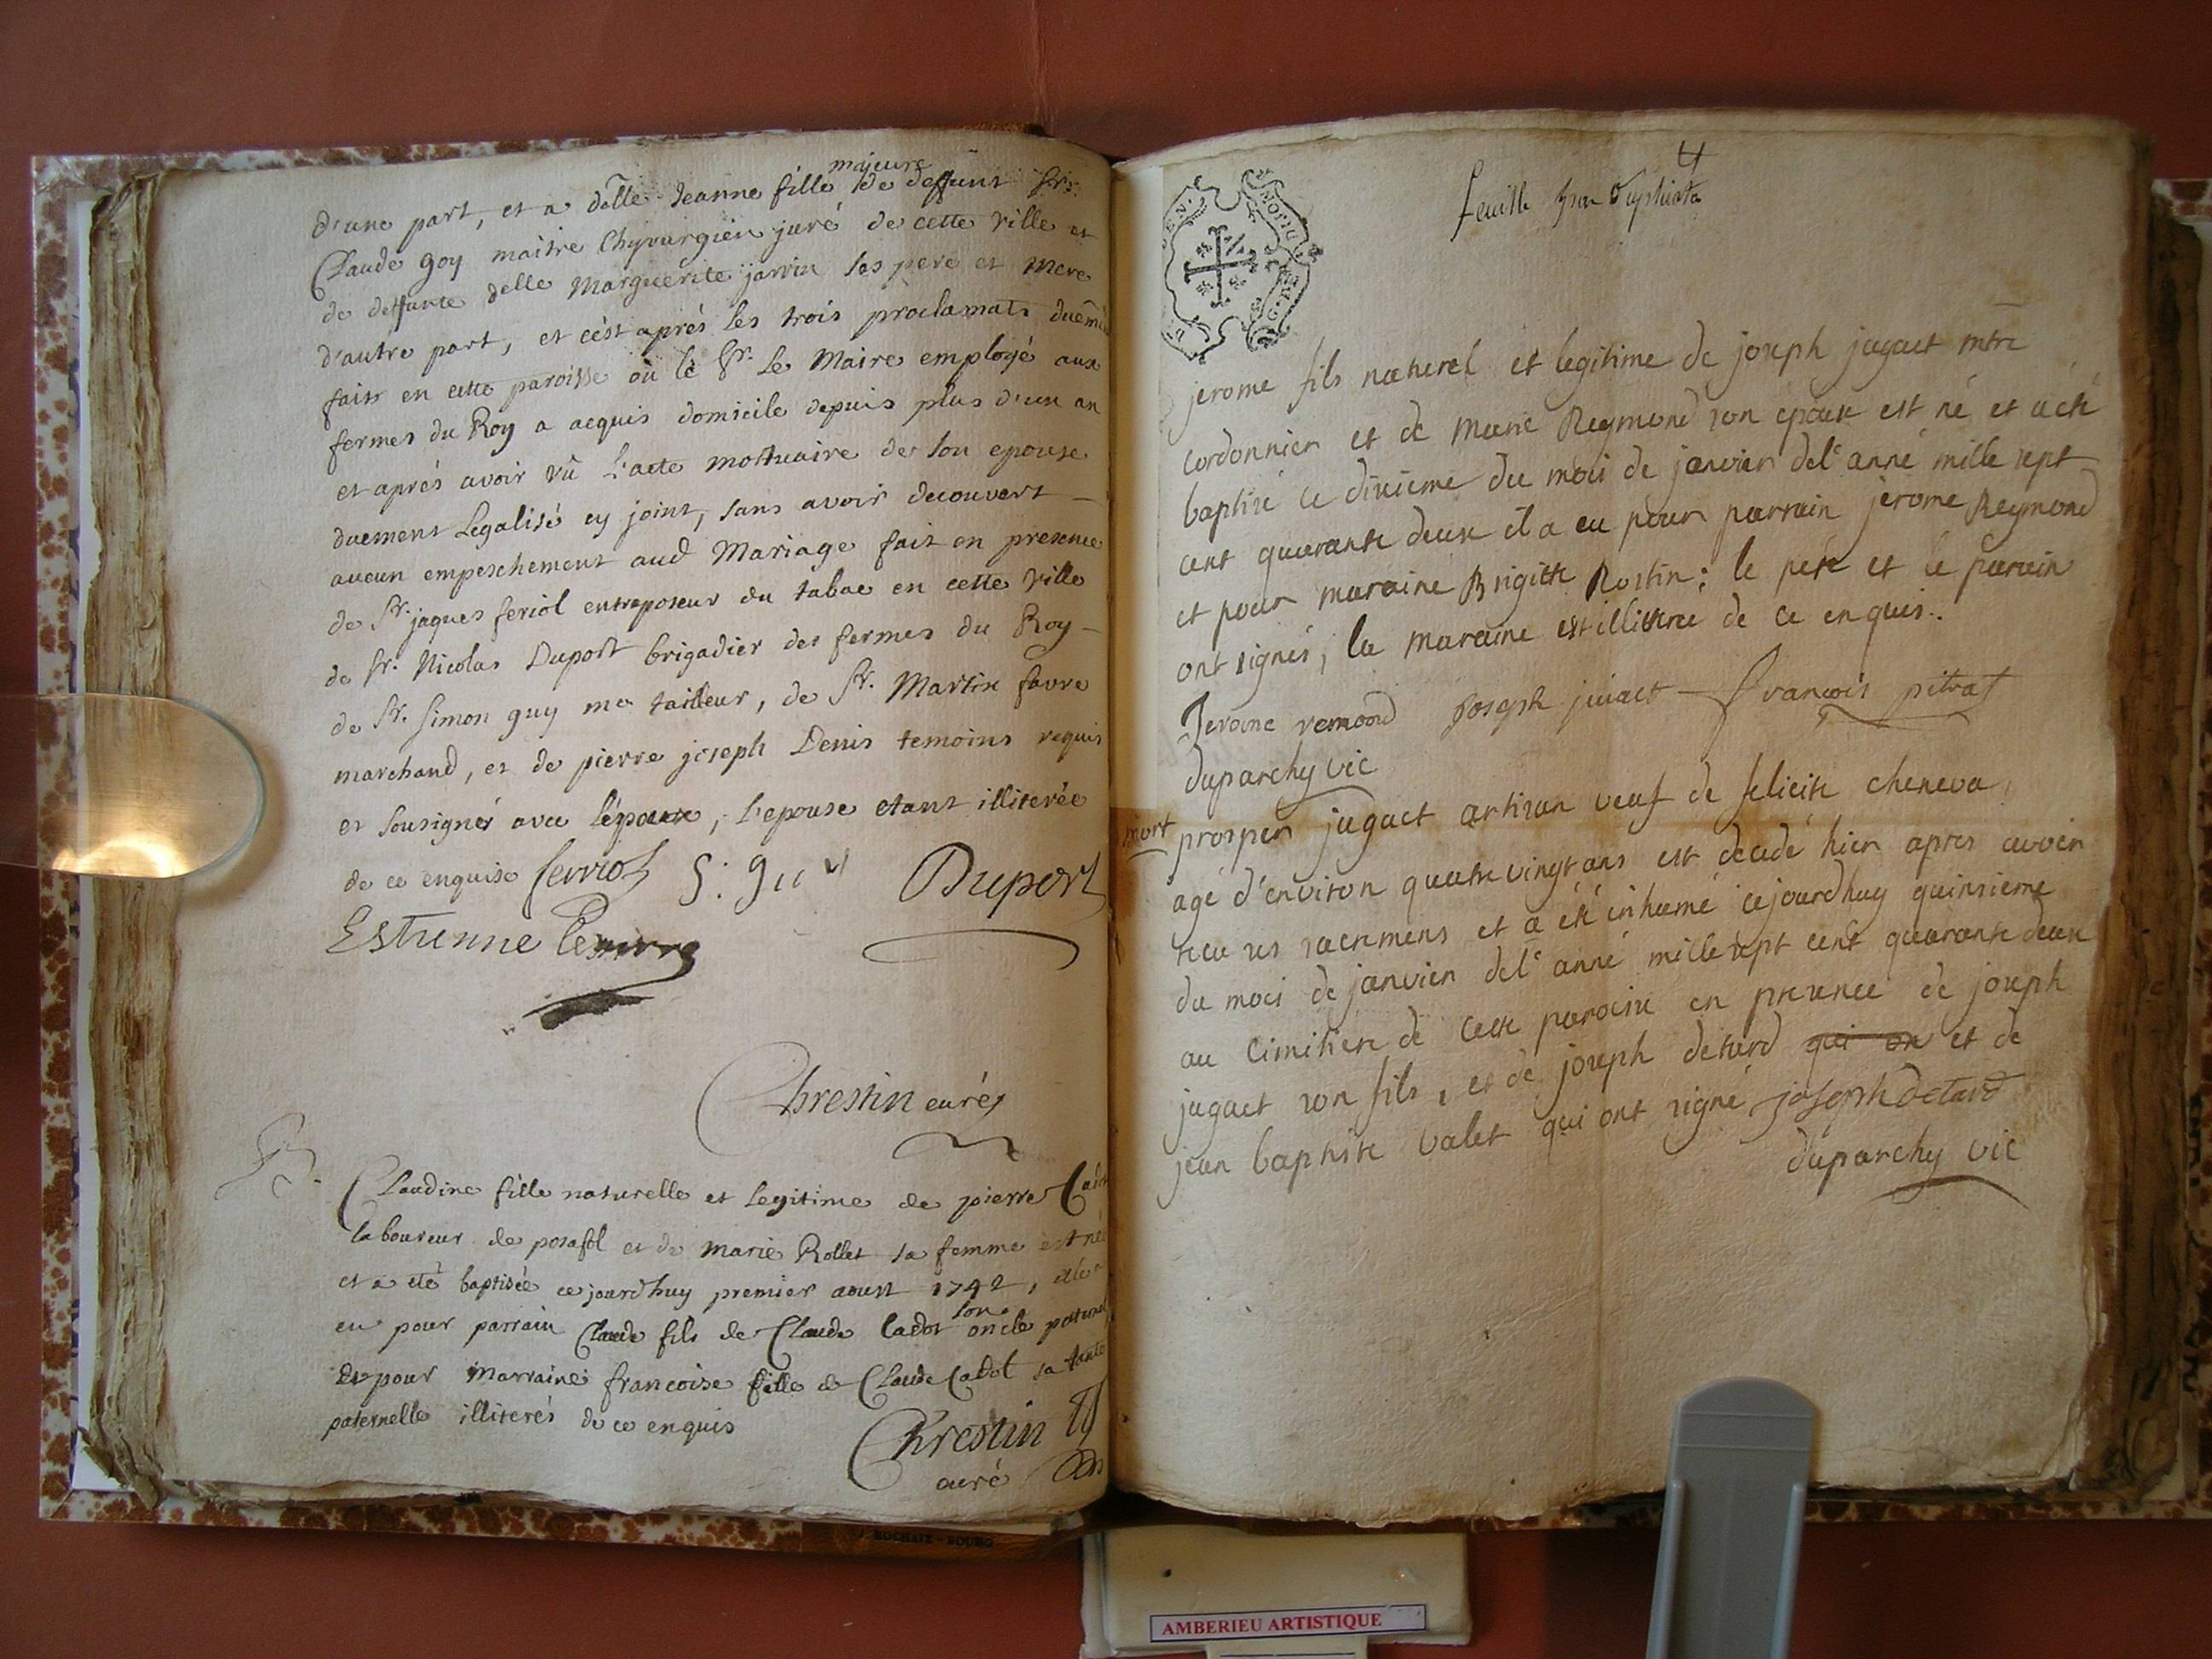 majeure
d'une part, et a delle Jeanne fille de deffunt Sr.
Claude goy maitre Chyrurgien juré de cette ville et
de deffunte delle Marguerite jarrin ses pere et mere
d'autre part, et c'est aprés les trois proclamats duem
fait en cette paroisse où le Sr. Le Maire employé aux
fermes du Roy a acquis domicile depuis plus d'un an
et aprés avoir vû L'acte mortuaire de son epouse
duement Legalisé cy joint, sans avoir decouvert
aucun empeschement aud Mariage fait en presence
de Sr. jaques feriol entreposeur du tabac en cette ville
de Sr. Nicolas Duport brigadier des fermes du Roy
de Sr. Simon guy me tailleur, de Sr. Martin favre
marchand, et de pierre joseph Denis temoins requis
et sousignés avec l'epoux, l'epouse etant illiterée
de ce enquise ferriol S: guy Duport
Estienne Lemere
Chrestin curé
Claudine fille naturelle et legitime de pierre Cadot
laboureur de posafol et de marie Rollet sa femme est née
et a eté baptisée ce jourd'huy premier aoust 1742, elle a
eu pour parrain Claude fils de Claude Cadot son oncle paternel
et pour Marraine francoise fille de Claude Cadot sa tante
paternelle illiterés de ce enquis
Chrestin
curé
4
feuille pour Duplicata
DIJON
jerome fils naturel et legitime de joseph jugact mtre
cordonnier et de marie Reymond son epouse est né et a été
baptisé le dixième du mois de janvier de l'anné mille sept
cent quarante deux il a eu pour parrain jerome Reymond
et pour maraine Brigitte Rostin; le père et le parain
ont signés; la maraine est illiterée de ce enquis.
Jerome remond joseph juiact François pitrat
duparchy vic
mort
prosper jugact artisan veuf de felicite cheneva
agé d'environ quatre vingt ans est decedé hier apres avoir
recu ses sacremens et a été inhumé cejourdhuy quinsieme
du mois de janvier de l'anné mille sept cent quarante deux
au Cimitiere de cette paroisse en presence de joseph
jugact son fils, et de joseph detard qui on et de
jean baptiste valet qui ont signé joseph detard
duparchy vic
J. ROCHAIX - BOURG
AMBERIEU ARTISTIQUE